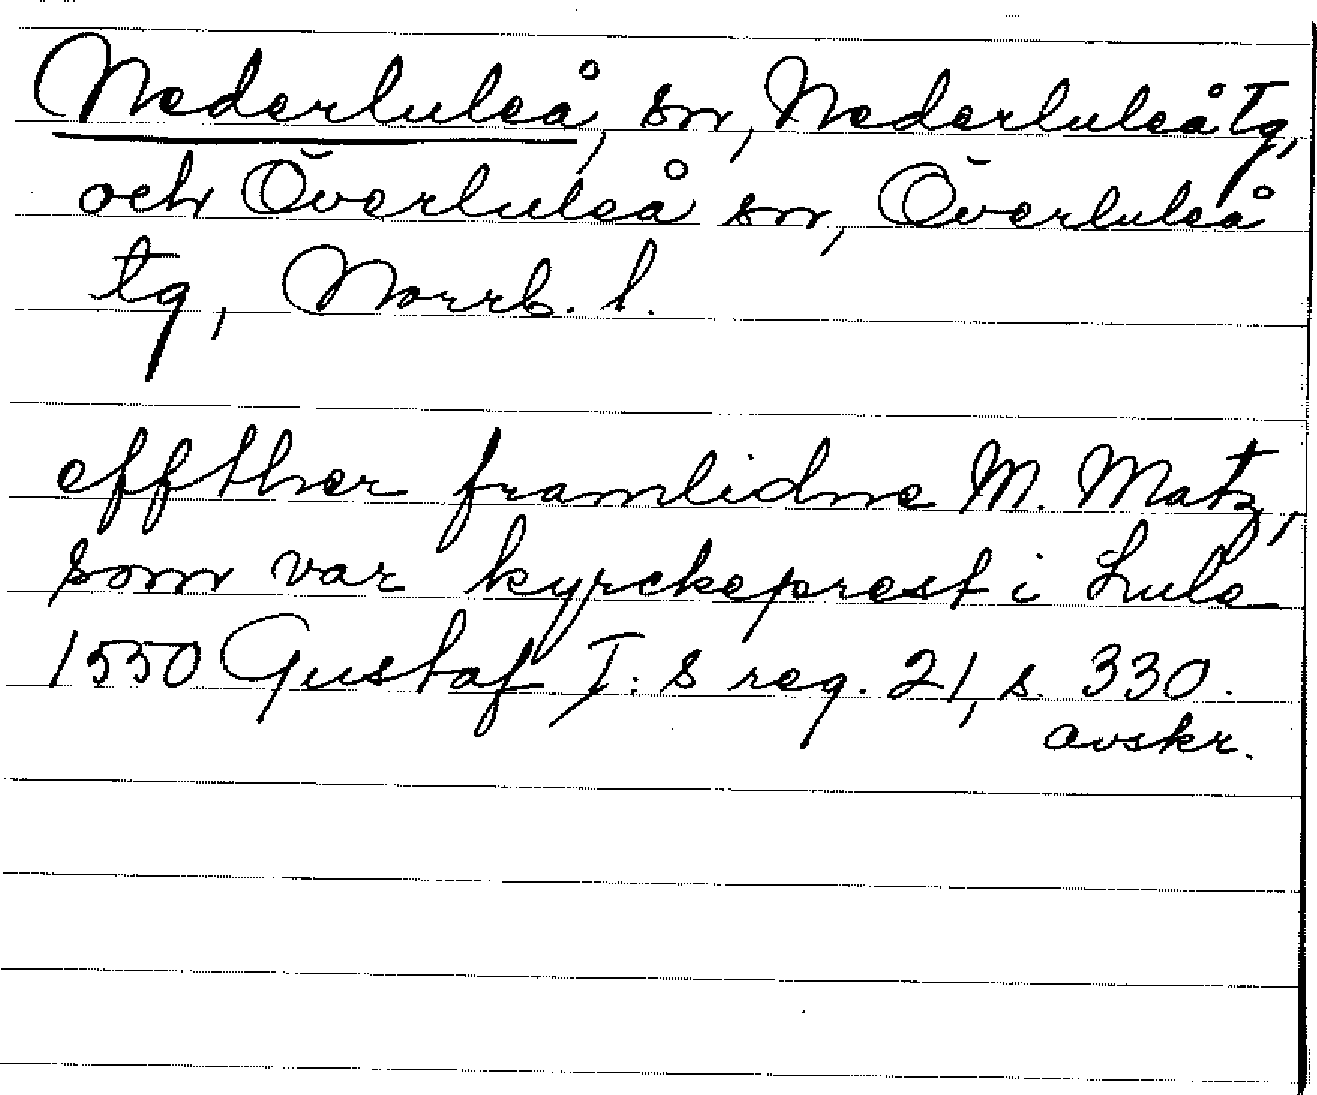 Nederluleå, sn, Nederluleå tg,
och Överluleå sn, Överluleå
tg, Norrb. l.
effther framlidne M. Matz,
som var kyrckeprest i Lule
1550 Gustaf I:s reg. 21, s. 330.
avskr.